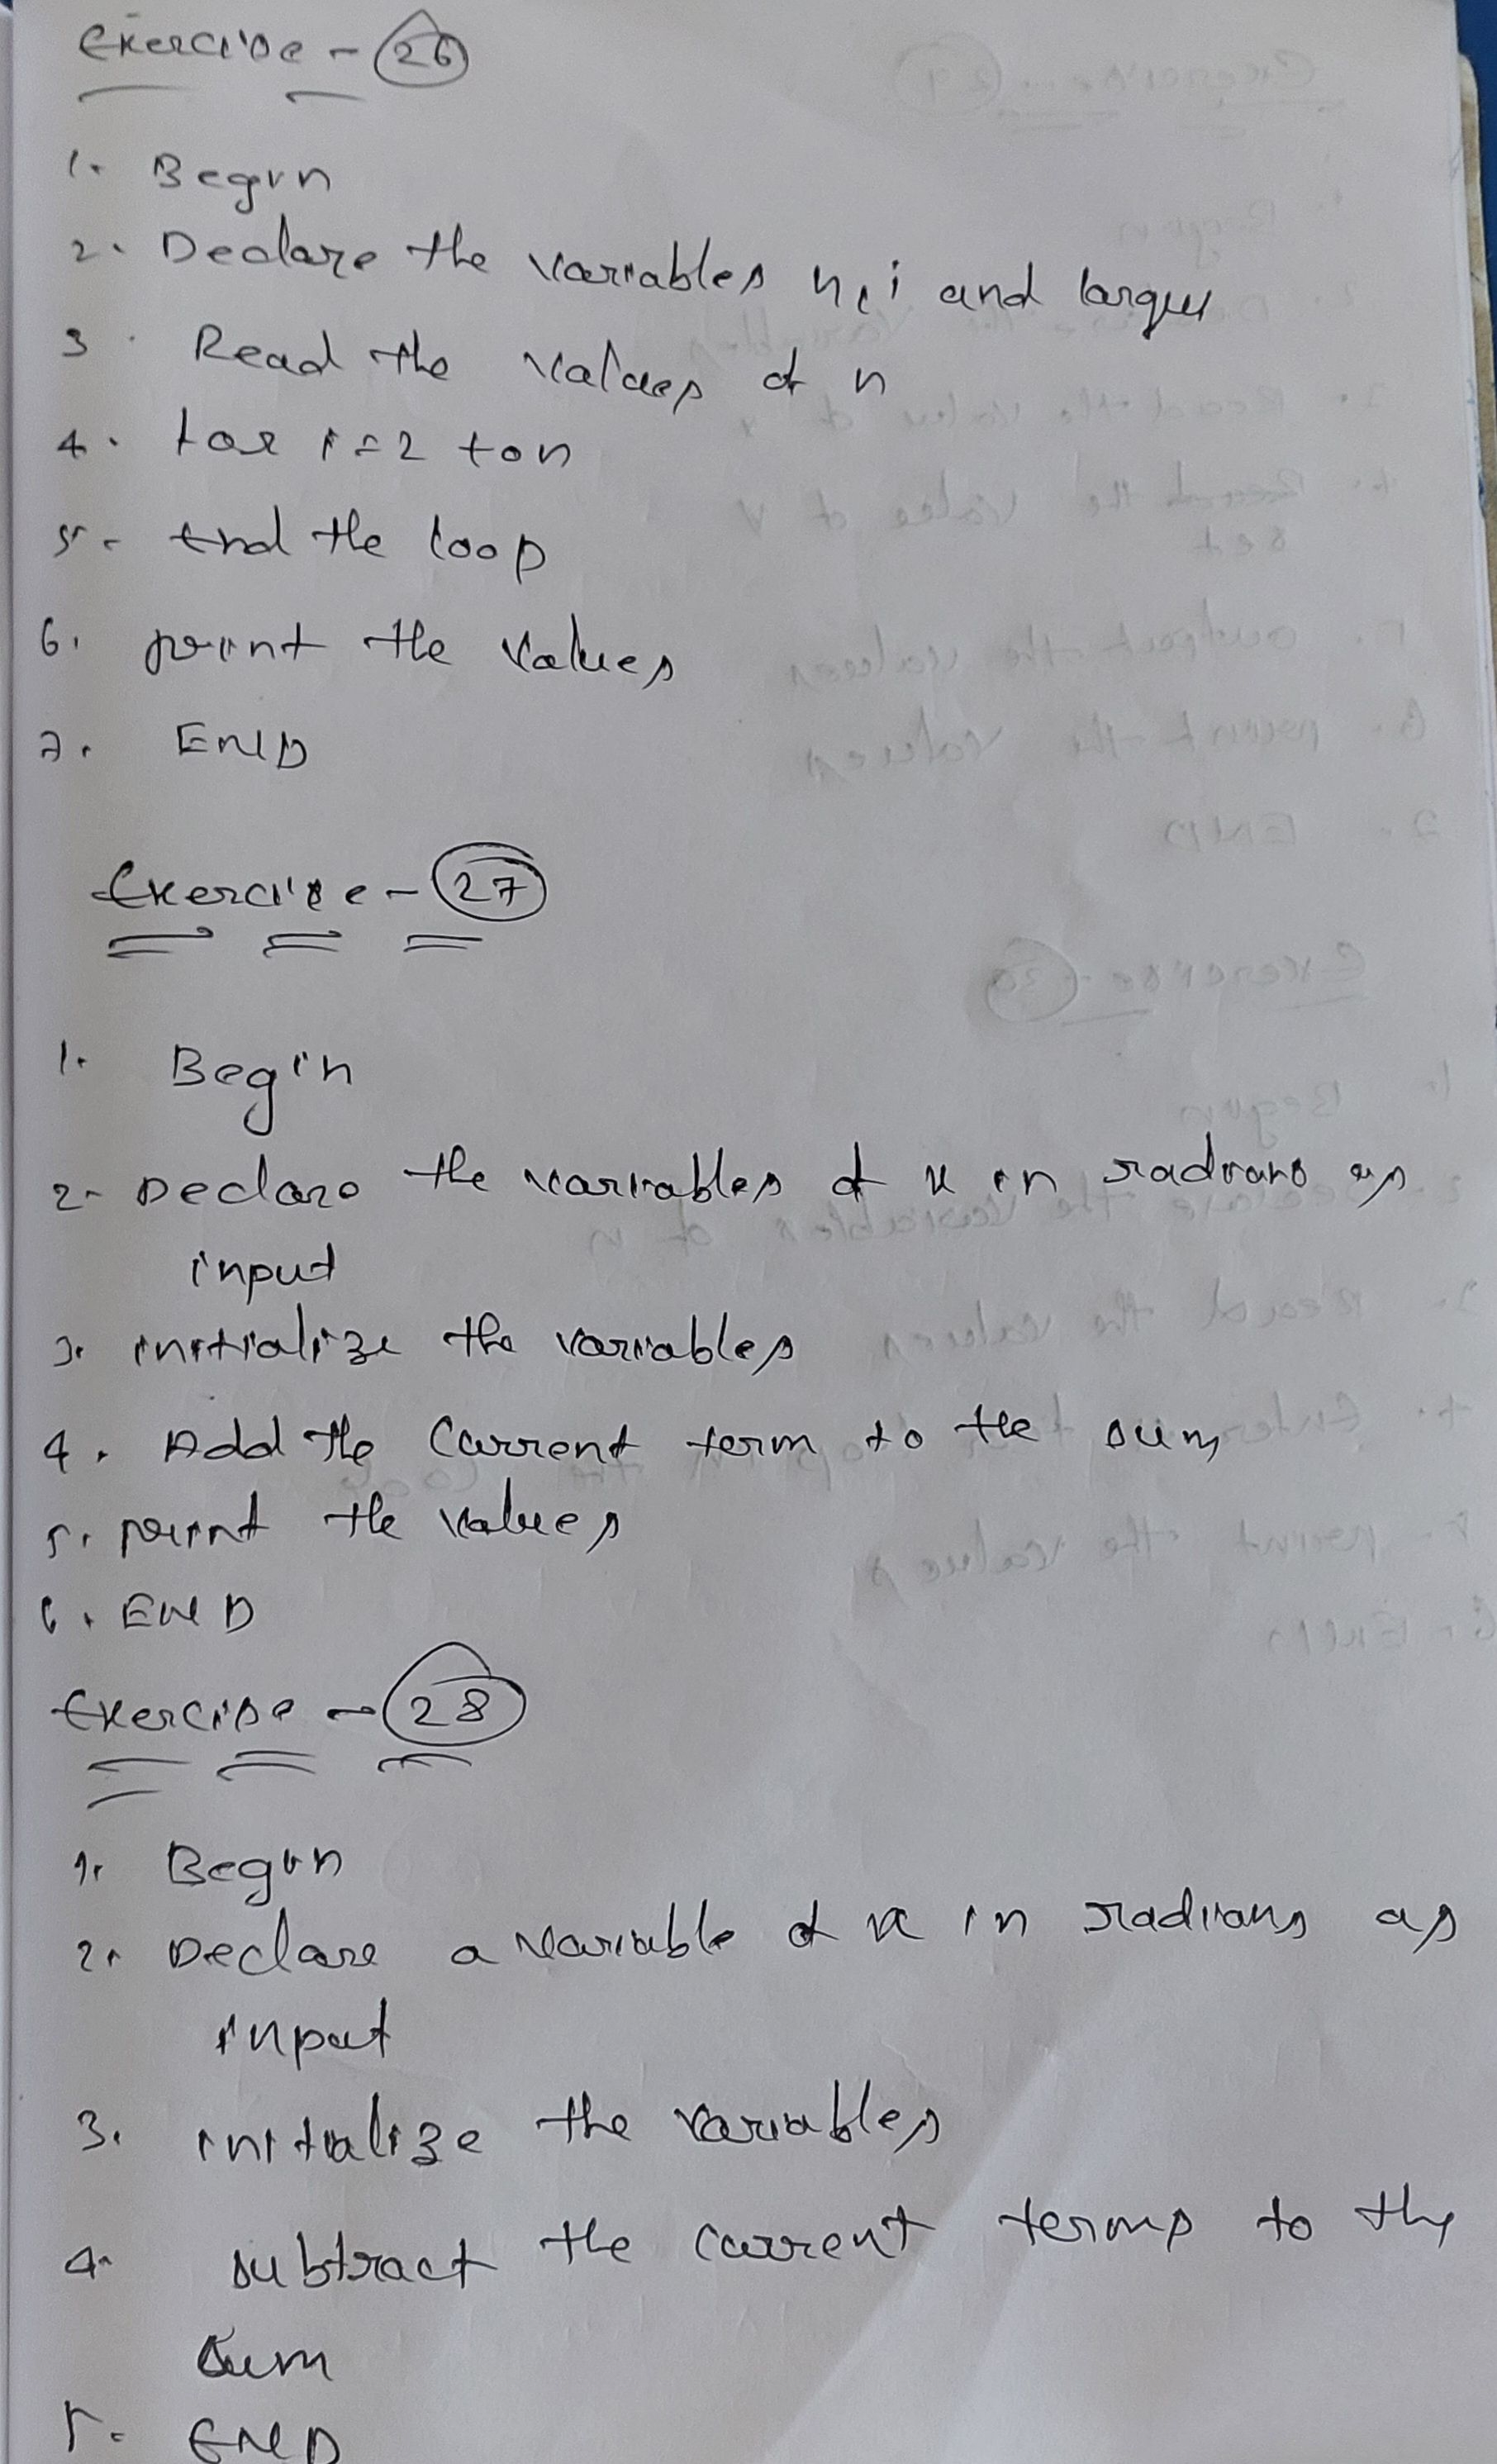 Exercise - 26
1. Begin
2. Declare the variables n, i and larger
3. Read the values of n
4. for i = 2 to n
5. End the loop
6. print the values
7. END
Exercise - 27
1. Begin
2. Declare the variables of x in radians as
input
3. initialize the variables
4. Add the current term to the sum
5. print the values
6. END
Exercise - 28
1. Begin
2. Declare a variable of x in radians as
input
3. initialize the variables
4. subtract the current terms to the
sum
5. END